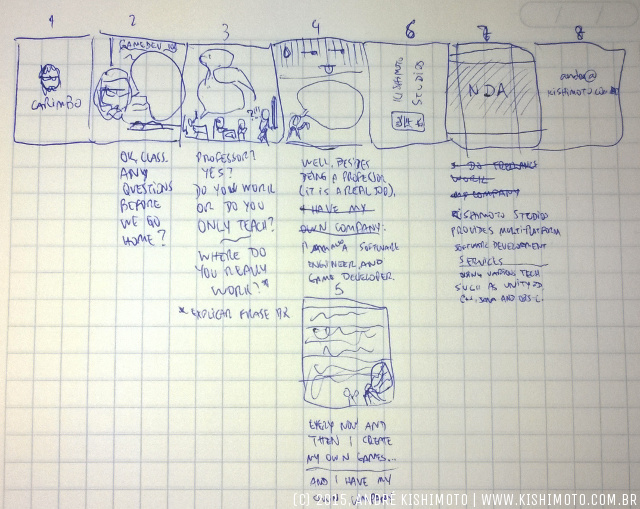 1
2
3
4
6
7
8
CARIMBO
GAMEDEV_
KISHIMOTO
STUDIOS
NDA
andre@
kishimoto.com.br
OK, CLASS.
ANY
QUESTIONS
BEFORE
WE GO
HOME?
PROFESSOR?
YES?
DO YOU WORK
OR DO YOU
ONLY TEACH?
WHERE DO
YOU REALLY
WORK?*
* EXPLICAR FRASE BR
WELL, BESIDES
BEING A PROFESSOR
(IT IS A REAL JOB),
I HAVE MY
OWN COMPANY.
I A SOFTWARE
ENGINEER AND
GAME DEVELOPER.
5
EVERY NOW AND
THEN I CREATE
MY OWN GAMES...
AND I HAVE MY
OWN COMPANY
I DO FREELANCE
WORK
MY COMPANY
KISHIMOTO STUDIOS
PROVIDES MULTI-PLATFORM
SOFTWARE DEVELOPMENT
SERVICES
USING VARIOUS TECH
SUCH AS UNITY3D,
C++, JAVA AND OBJ-C.
(C) 2025, ANDRÉ KISHIMOTO | WWW.KISHIMOTO.COM.BR